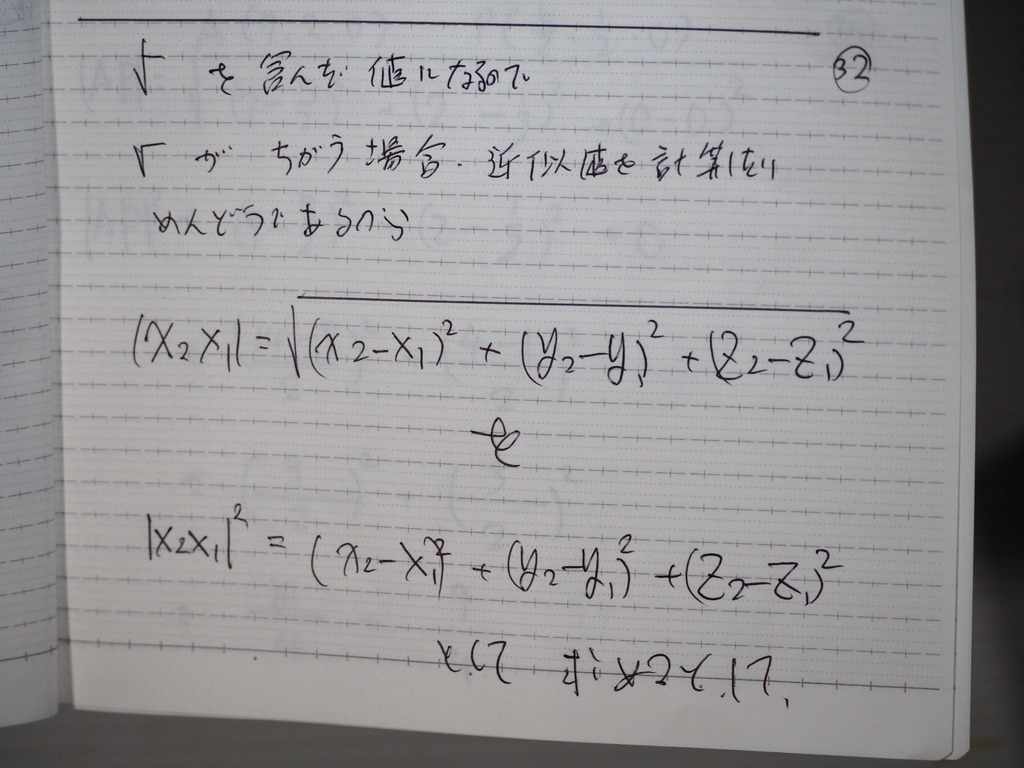 √ を含んだ値になるので ㉜
√ が ちがう場合、近似値を計算したり
めんどうであるから
|x₂x₁| = √(x₂-x₁)² + (y₂-y₁)² + (z₂-z₁)²
を
|x₂x₁|² = (x₂-x₁)² + (y₂-y₁)² + (z₂-z₁)²
として 求めていく。